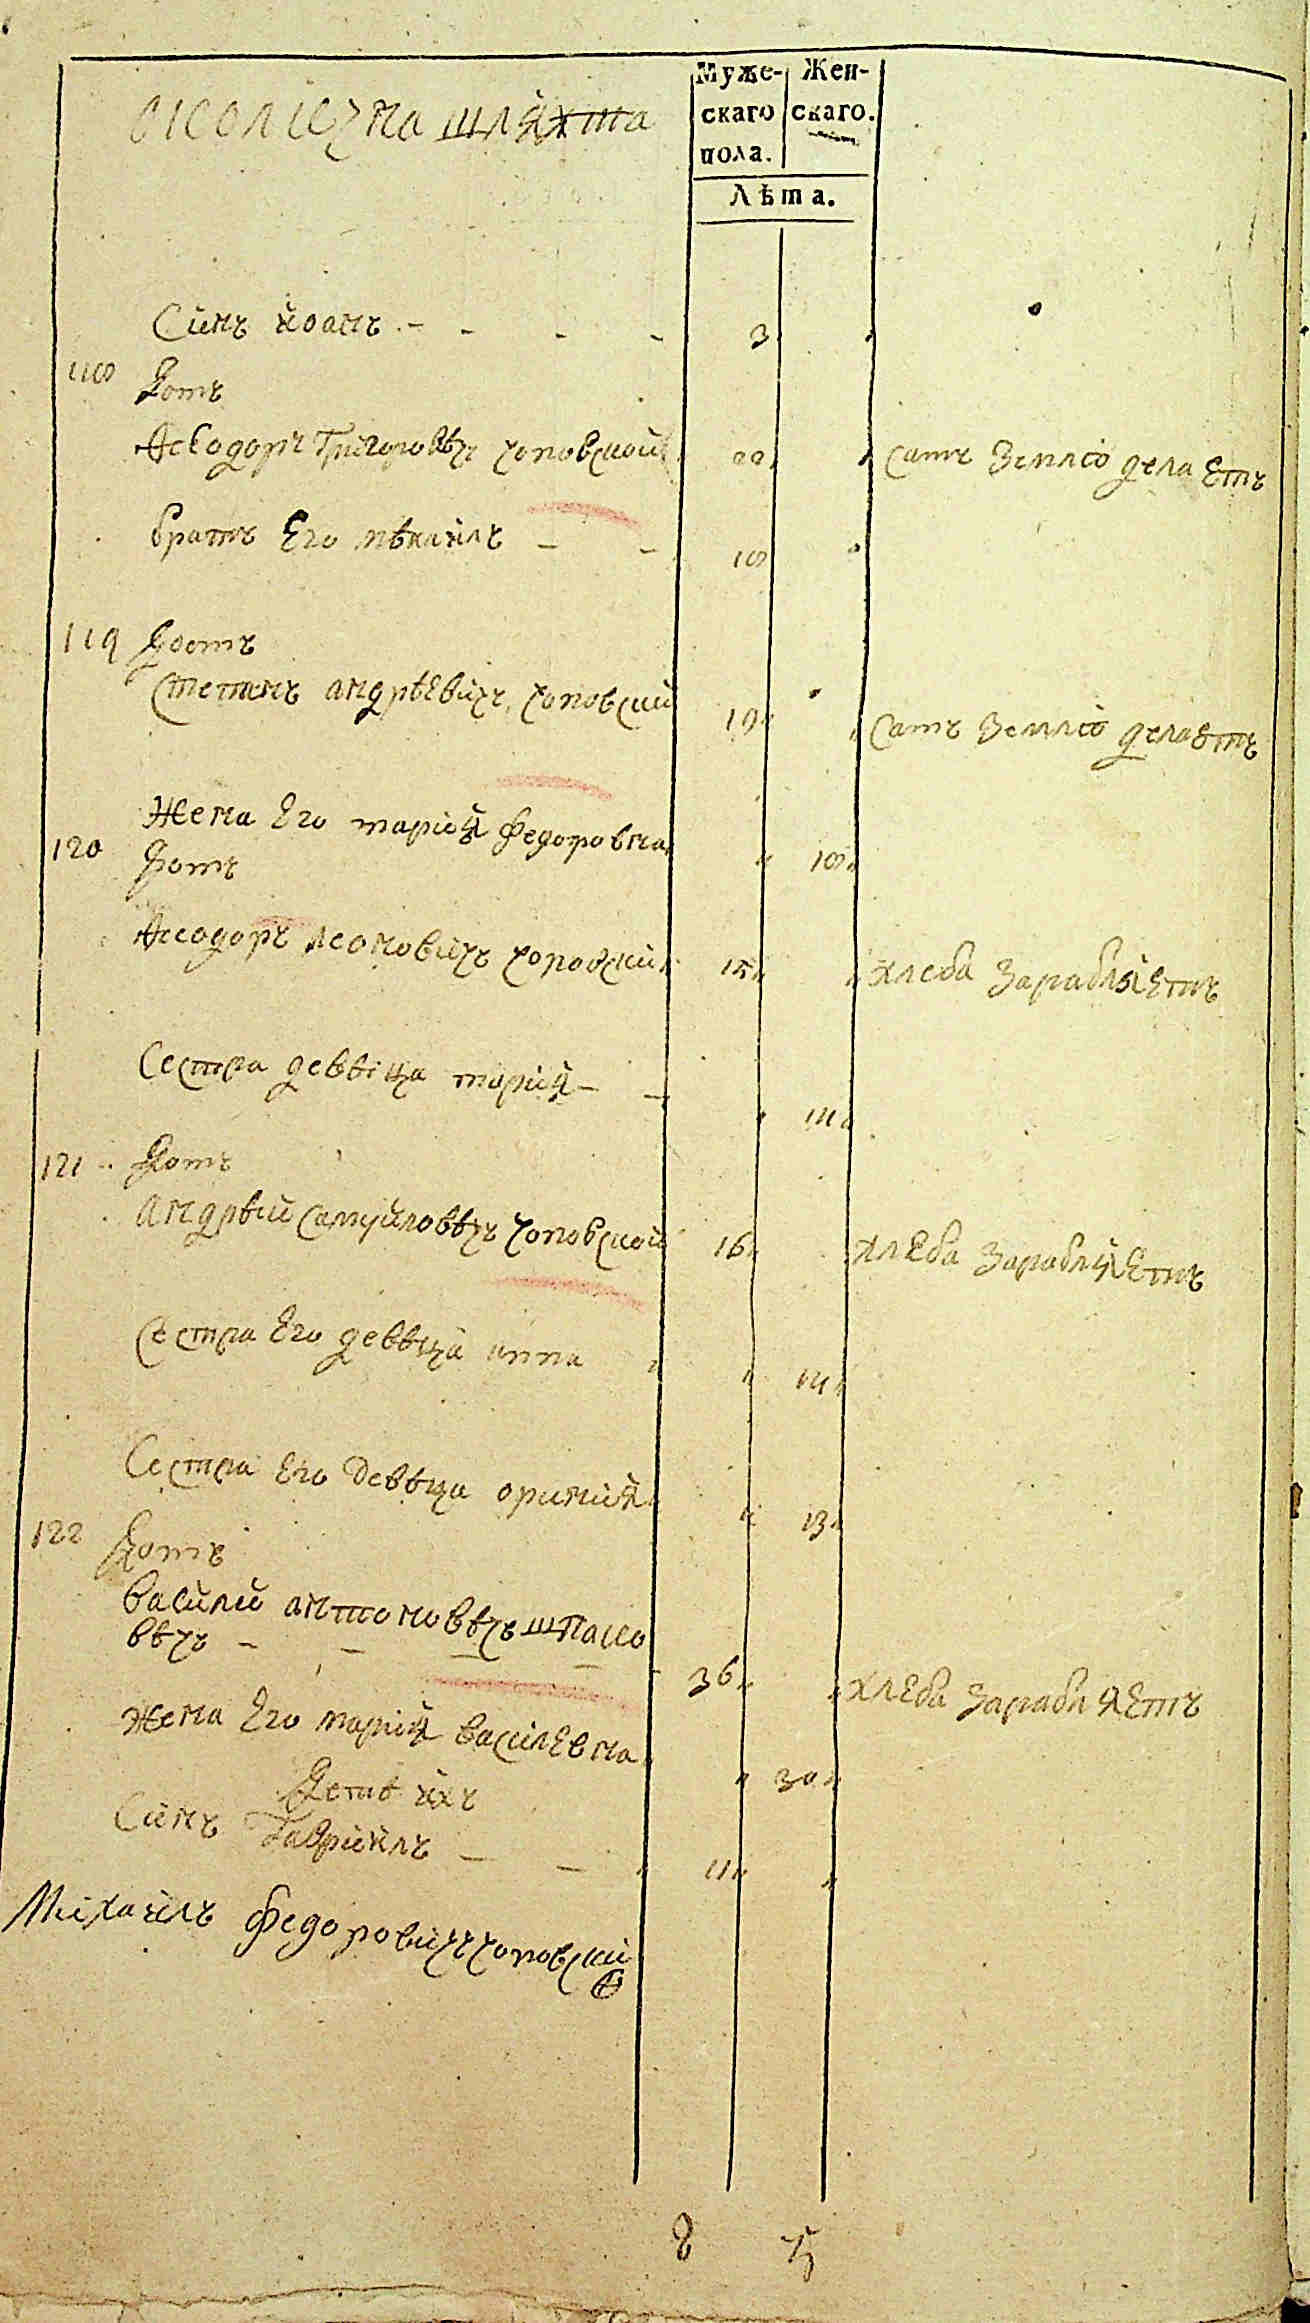 околична шляхта
Муже-
скаго
пола.
Жен-
скаго.
Лѣта.
Синъ Йоанъ - - - - 3
118 Домъ
Ѳеодоръ Григоровѣч Чоповской 22 самъ землю делаетъ
братъ его мѣхайлъ - - 18
119 Домъ
Степанъ андрѣевичъ Чоповский 19 самъ землю делаетъ
Жена Его мария федоровна 18
120 Домъ
Ѳеодоръ леоновичъ Чоповский 15 хлеба зарабляетъ
Сестра девѣца мария - - 14
121 Домъ
андрѣй самуйловѣчъ Чоповской 16 хлеба зарабляетъ
сестра Его девѣца анна 14
Сестра Его девѣца ориния 13
122 Домъ
василий антоновѣчъ
вѣчъ - - - - 36 хлеба зарабляетъ
Жена Его мария василевна 30
Дети ихъ
Синъ Гавриилъ - - 11
Михайлъ федоровичъ Чоповский
8 5